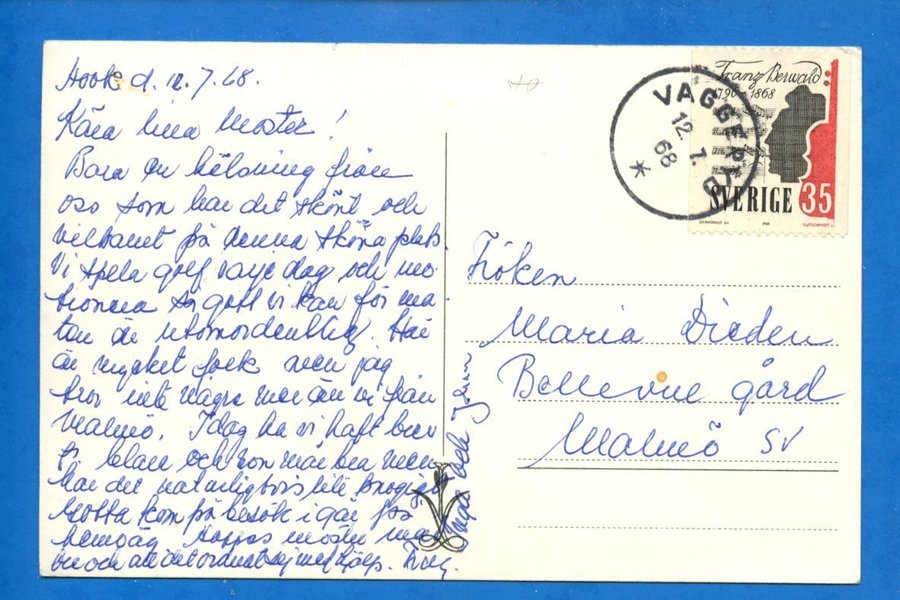 Hook d. 12.7.68.
Kära lilla Moster!
Bara en hälsning från
oss som har det skönt och
vilsamt på denna sköna plats.
Vi spela golf varje dag och mo-
tionera så gott vi kan för ma-
ten är utomordentlig. Här
är mycket folk men jag
tror inte några mer än vi från
Malmö. Idag ha vi haft brev
fr. och hon mår bra men
har det naturligtvis lite
Lotta kom på besök i går fos
hemväg. Hoppas moster mår
bra och att det ordnat sej med hjälp.
Inga och
Franz Berwald
1796-1868
SVERIGE 35
VAGGERYD
12.7.
68
Fröken
Maria Dieden
Bellevue gård
Malmö SV